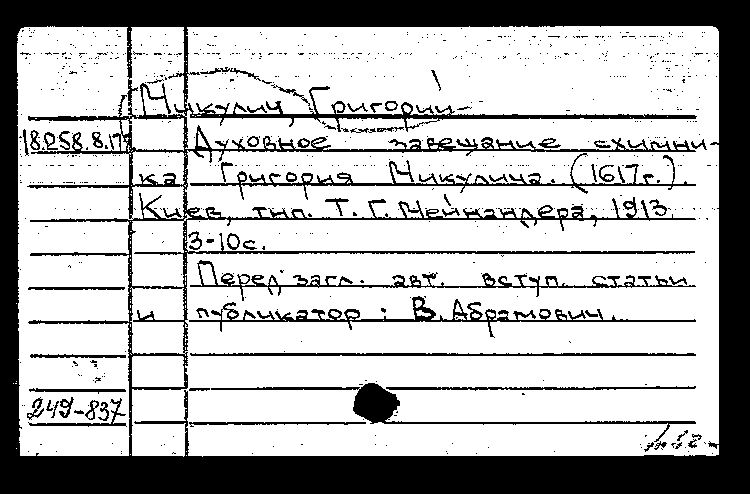 Микулич, Григорий
18.258.8.17 Духовное завещание схимни-
ка Григория Микулича. (1617г.).
Киев, тип. Т. Г. Мейнандера, 1913
3-10с.
Перед загл. авт. вступ. статьи
и публикатор: В. Абрамович.
249-837